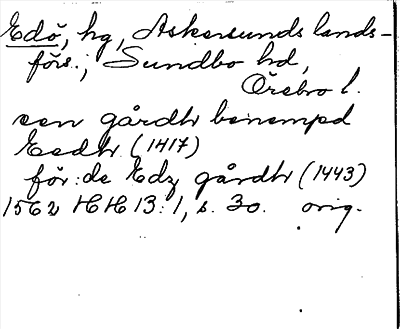 Edö, hg, Askersunds lands-
förs.; Sundbo hd,
Örebro l.
een gårdh benempd
Eedh (1417)
för: de Edz gårdh (1443)
1562 HH 13:1, s. 30. orig.